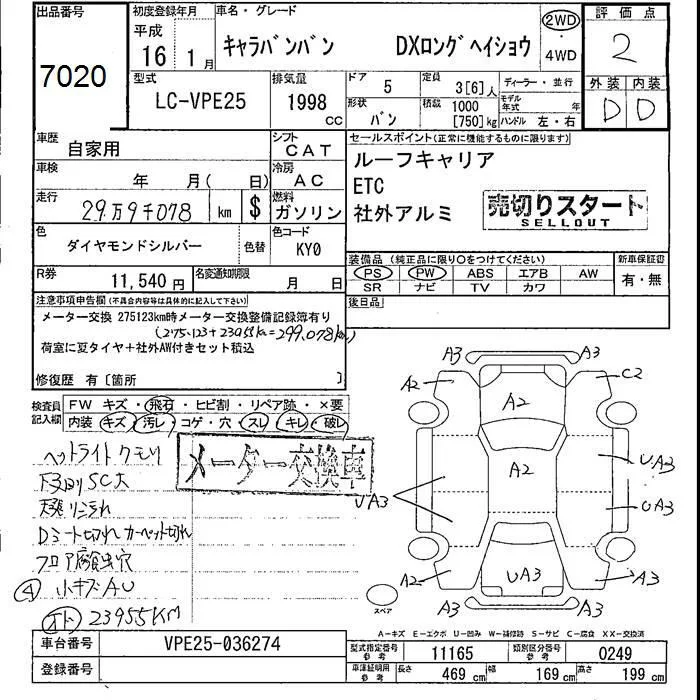 出品番号
7020
初度登録年月
平成
16 1月
車名・グレード
キャラバンバン DXロングヘイショウ
2WD
・
4WD
評価点
2
型式
LC-VPE25
排気量
1998
CC
ドア
5
定員
3[6]人
ディーラー・並行
形状
バン
積載
1000
[750]kg
モデル年式 年
ハンドル 左・右
外装 内装
D D
車歴
自家用
シフト
CAT
セールスポイント(正常に機能するものに限ります)
ルーフキャリア
ETC
社外アルミ
売切りスタート
SELLOUT
車検
年 月( 日)
冷房
AC
走行
29万9千078 km $
燃料
ガソリン
色
ダイヤモンドシルバー
色替
色コード
KY0
装備品(純正品に限り○をつけてください)
PS PW ABS エアB AW
SR ナビ TV カワ
新車保証書
有・無
R券
11,540円
名変通知期限
月 日
後日品
注意事項申告欄(不具合内容等は具体的に記入して下さい)
メーター交換 275123km時メーター交換整備記録簿有り
(275,123+23955km=299,078km)
荷室に夏タイヤ+社外AW付きセット積込
修復歴 有〔箇所 〕
検査員
記入欄
FW キズ・飛石・ヒビ割・リペア跡・×要
内装 キズ・汚レ・コゲ・穴・スレ・キレ・破レ
ヘットライトクモリ
下廻りSC大
Dシート切れ カーペット切れ
フロア腐食穴
④ 小キズAU
オド 23955KM
メーター交換車
A3 A3
A2 C2
A2
A2
UA3
UA3
UA3
A2 UA3 A3
A3 A3
スペア
A-キズ E-エクボ U-凹み W-補修跡 S-サビ C-腐食 XX-交換済
車台番号
VPE25-036274
登録番号
型式指定番号
参考
11165
類別区分番号
参考
0249
車庫証明用
参考
長さ
469 cm
幅
169 cm
高さ
199 cm